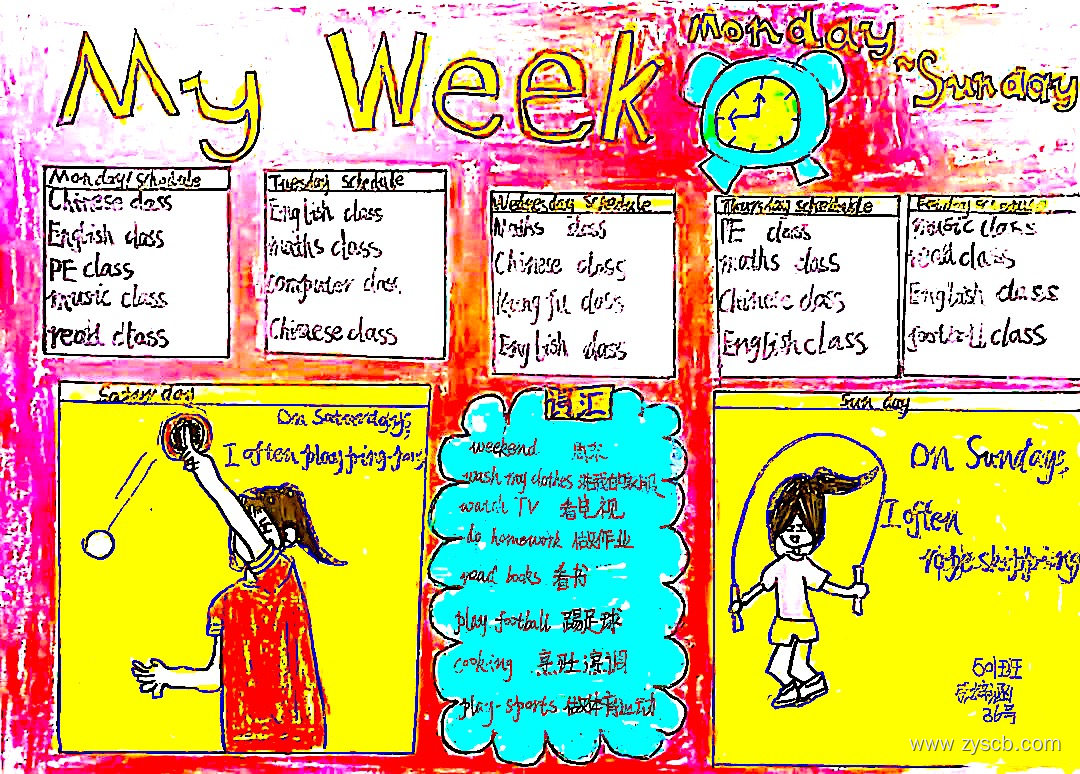 My Week
Monday
~Sunday
Monday schedule
Chinese class
English class
PE class
music class
read class
Tuesday schedule
English class
maths class
computer class
Chinese class
Wednesday schedule
Maths class
Chinese class
Kung fu class
English class
Thursday schedule
PE class
maths class
Chinese class
English class
music class
read class
English class
football class
Saturday
On Saturdays,
I often play ping-pong
词汇
weekend 周末
wash my clothes 洗我的衣服
watch TV 看电视
do homework 做作业
read books 看书
play football 踢足球
cooking 烹饪
play sports 做体育运动
Sunday
On Sundays,
I often
rope skipping
501班
36号
www.zyscb.com